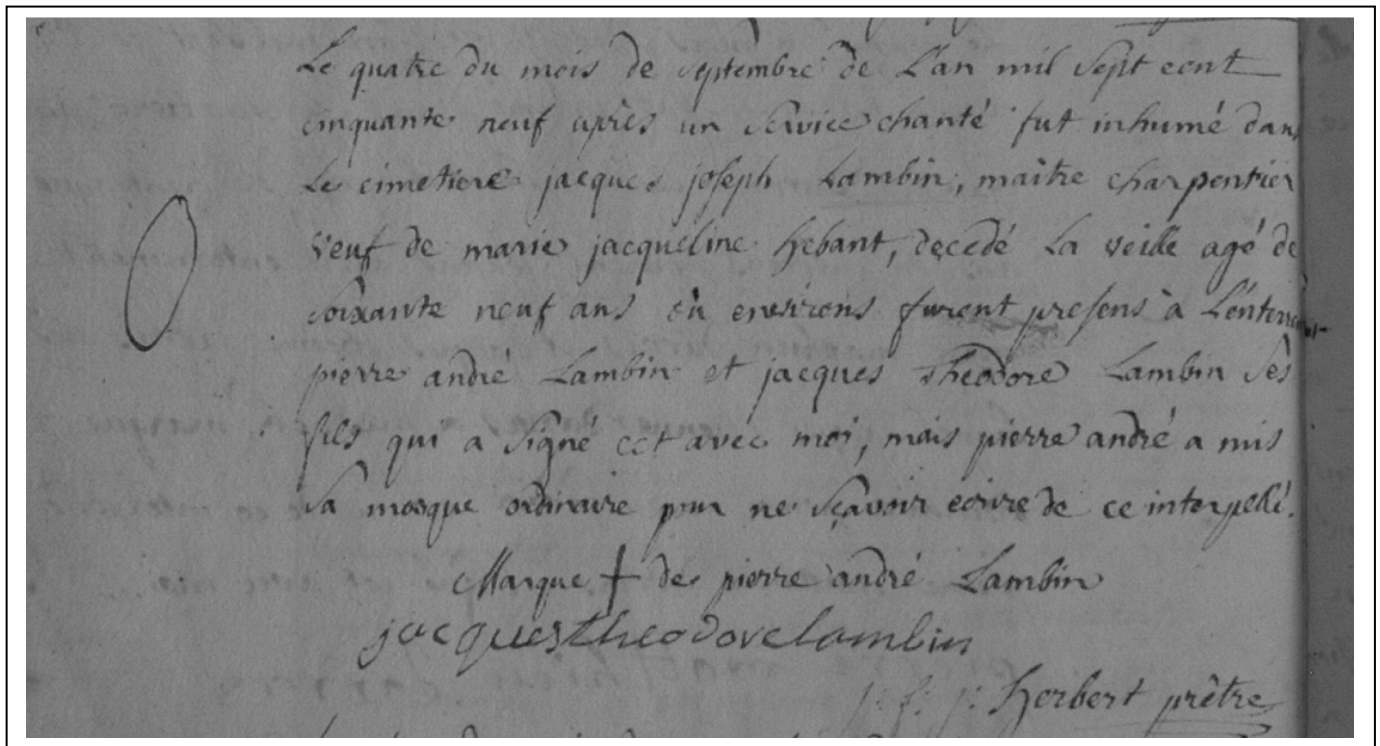 Le quatre du mois de septembre de L'an mil sept cent
cinquante neuf après un service chanté fut inhumé dans
Le cimetiere jacques joseph Lambin, maître charpentier
veuf de marie jacqueline hebant, decedé La veille agé de
soixante neuf ans ou environs furent presens à L'enterrement
pierre andré Lambin et jacques Theodore Lambin ses
fils qui a signé cet avec moi, mais pierre andré a mis
sa marque ordinaire pour ne sçavoir ecrire de ce interpellé.
Marque + de pierre andré Lambin
jacquestheodorelambin
herbert prêtre